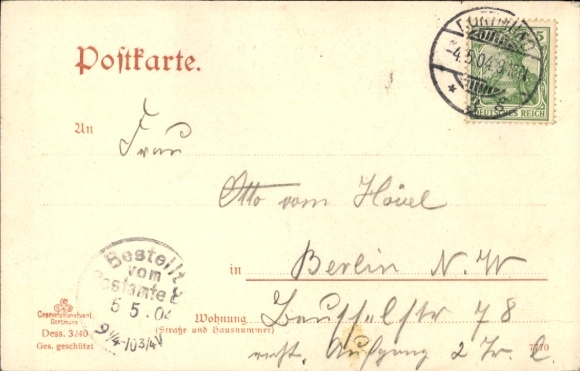 Postkarte.
DORTMUND
-4.5.04.9
5
DEUTSCHES REICH
An
Frau
Otto vom Hövel
in Berlin N. W
Wohnung Beusselstr 78
(Straße und Hausnummer)
recht. Aufgang 2 Tr. l.
Bestellt
vom
Postamte
5 5.04
9 1/4-10 3/4 V
Dortmund
Dess. 3240
Ges. geschützt